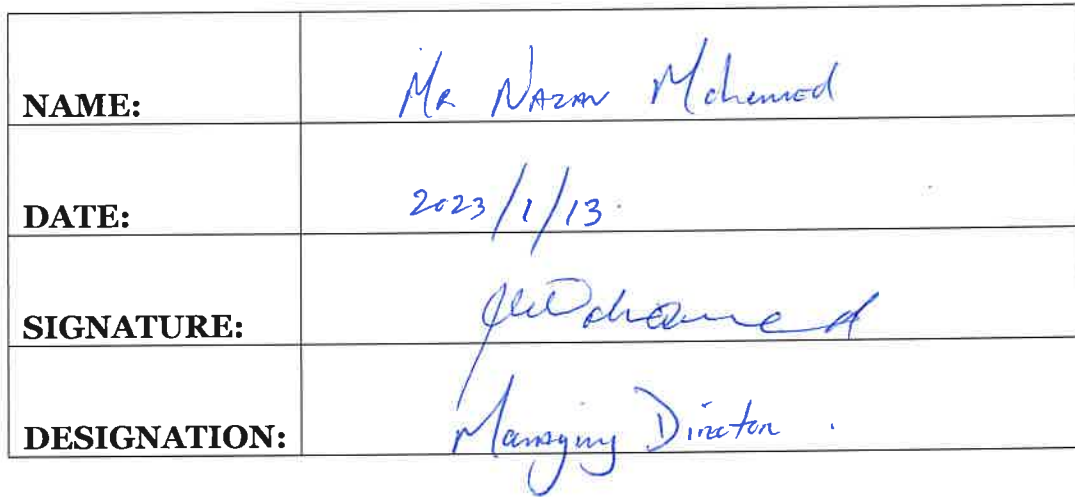 NAME: Mr Nazan Mohamed
DATE: 2023/1/13
SIGNATURE: Mohamed
DESIGNATION: Managing Director